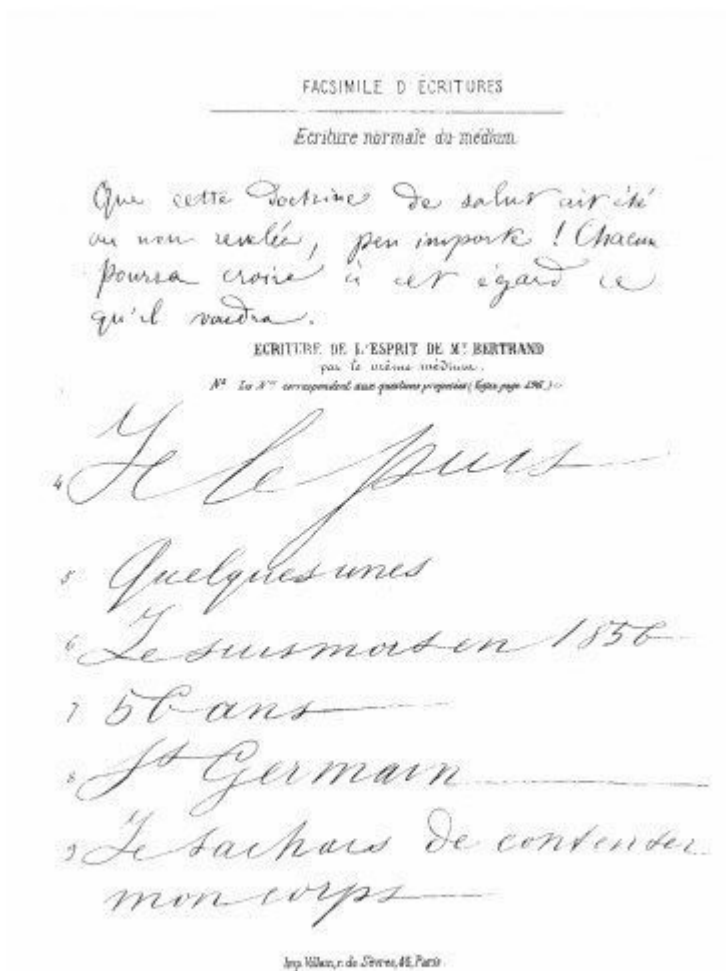 FACSIMILE D'ÉCRITURES
Ecriture normale du médium
Que cette Doctrine de salut ait été
ou non revelée, peu importe ! Chacun
pourra croire à cet égard ce
qu'il voudra.
ECRITURE DE L'ESPRIT DE Mr BERTRAND
par le même médium.
Na Les Nos correspondent aux questions proposées (Voyez page 196.)
4 Je le puis
5 Quelques unes
6 Je suis mort en 1856
7 56 ans
8 St Germain
9 Je tachais de contenter
mon corps
Imp. Villain, r. de Sèvres, 45, Paris